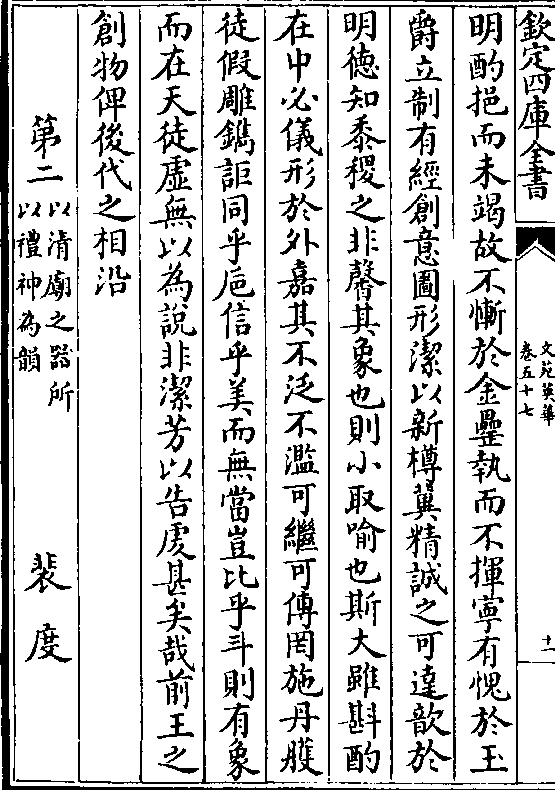 欽定四庫全書
文苑英華
卷五十七
十一
明酌挹而未竭故不慚於金罍執而不揮寧有愧於玉
爵立制有經創意圖形潔以新樽冀精誠之可達歆於
明徳知黍稷之非馨其象也則小取喻也斯大雖斟酌
在中必儀形於外嘉其不泛不濫可繼可傳罔施丹雘
徒假雕鐫詎同乎巵信乎美而無當豈比乎斗則有象
而在天徒虛無以為說非潔芳以告虔甚矣哉前王之
創物俾後代之相沿
第二 以清廟之器所以禮神為韻 裴度